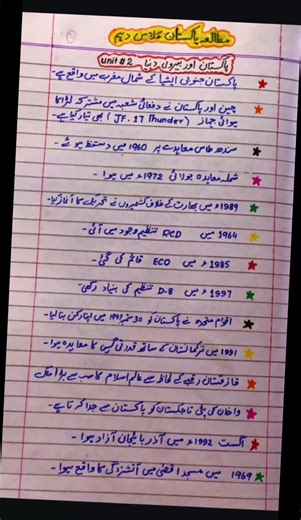 مطالعہ پاکستان کلاس دہم
unit #2 پاکستان اور بیرونی دنیا
پاکستان جنوبی ایشیا کے شمال مغرب میں واقع ہے۔
چین اور پاکستان نے دفاعی شعبہ میں مشترکہ لڑاکا
ہوائی جہاز (JF. 17 Thunder) بھی تیار کیا ہے۔
سندھ طاس معاہدے پر 1960 میں دستخط ہوئے۔
شملہ معاہدہ جولائی 1972ء میں ہوا۔
1989ء میں بھارت کے خلاف کشمیریوں نے تحریک کا آغاز کیا۔
1964 میں RCD تنظیم وجود میں آئی۔
1985ء میں ECO قائم کی گئی۔
1997ء میں D-8 تنظیم کی بنیاد رکھی۔
اقوام متحدہ نے پاکستان کو 30 ستمبر 1947 میں اپنا رکن بنا لیا۔
1991 میں ترکمانستان کے ساتھ قدرتی گیس کا معاہدہ ہوا۔
قازقستان رقبے کے لحاظ سے عالم اسلام کا سب سے بڑا ملک
واخان کی پٹی تاجکستان کو پاکستان سے جدا کرتا ہے۔
اگست 1992ء میں آذربائیجان آزاد ہوا۔
1969 میں مسجد اقصیٰ میں آتشزدگی کا واقع ہوا۔